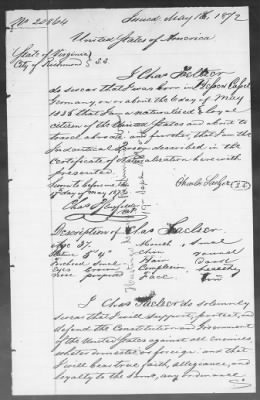 No 20864 Issued May 18, 1872
United States of America
State of Virginia
City of Richmond } S.S.
I Chas
do swear that was born in Hessen Cassel
Germany, on or about the day of May
1835 that I am a naturalized & loyal
citizen of the United States and about to
travel abroad and further, that I am the
Identical Person described in the
certificate of Naturalization herewith
presented.
Sworn to before me this
day of May 1872
Chas
Description of Chas
Age 37. Mouth, Small
Stature 5' 4" Chin
Forehead Small Hair
Eyes brown Complexion
Nose Face
I Chas do solemnly
swear that I will support, protect, and
defend the Constitution and Government
of the United States against all enemies,
whether domestic or foreign and that
I will bear true faith, allegiance, and
loyalty to the same, any ordinance